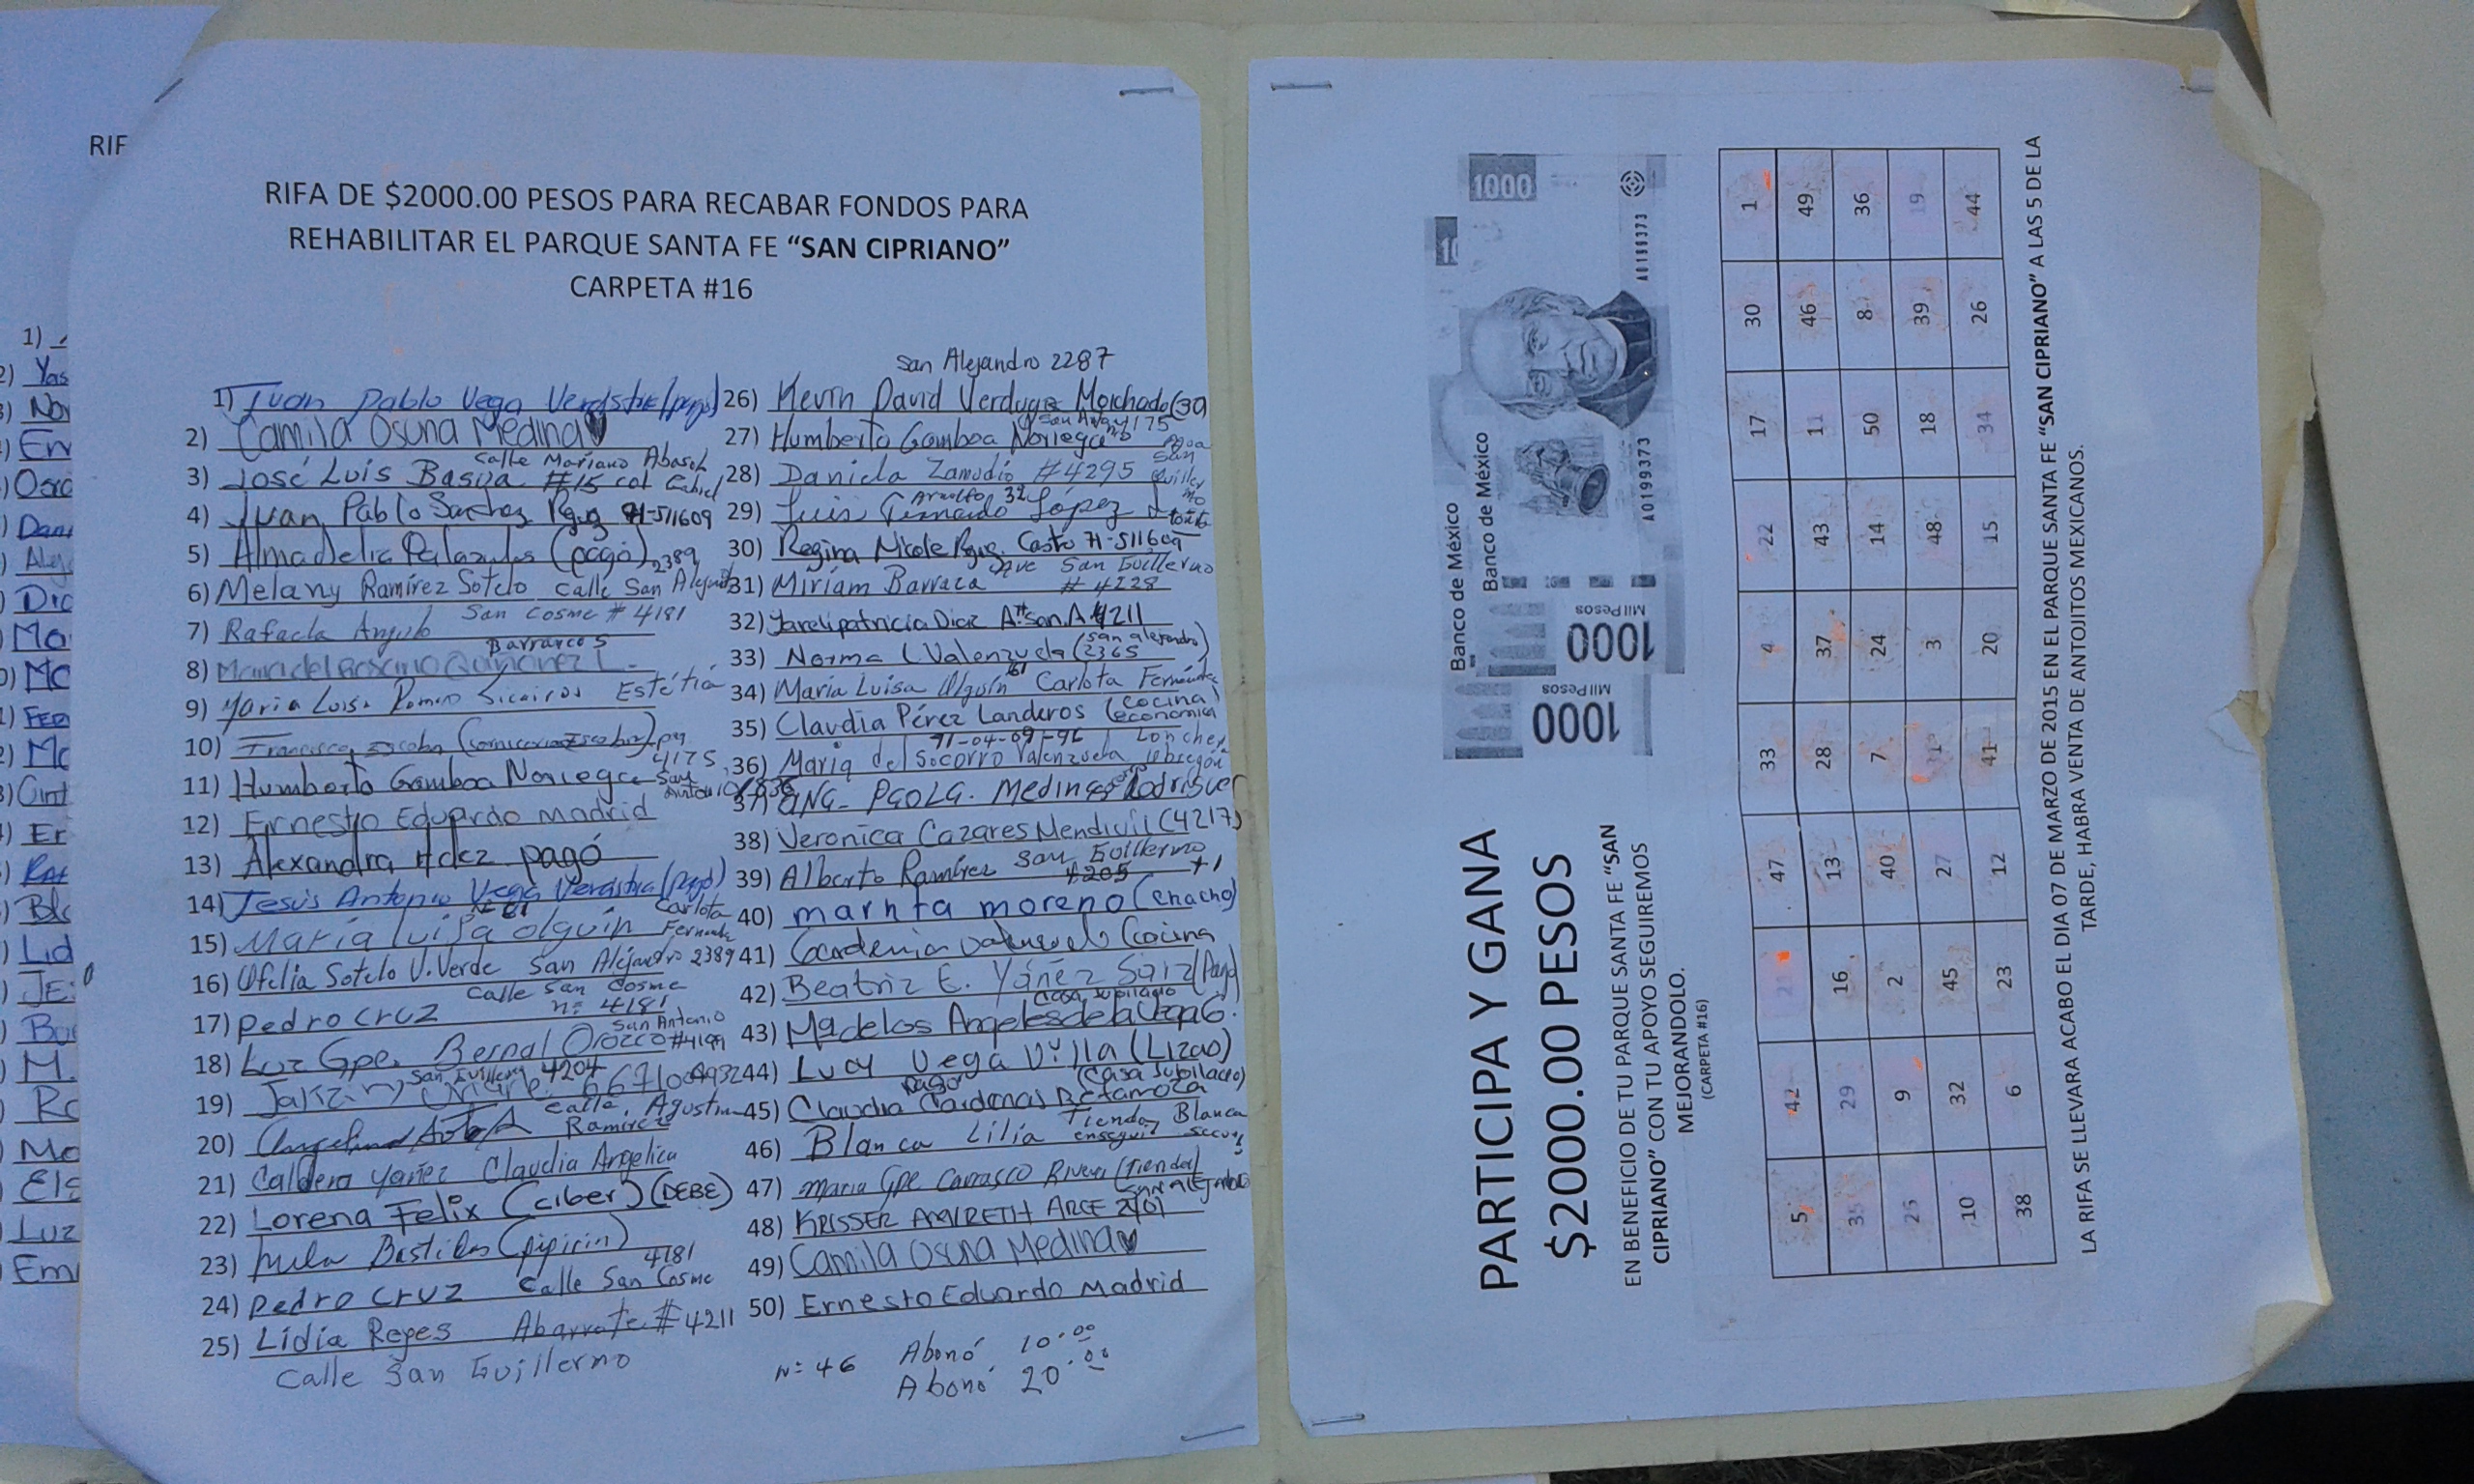 RIF
1)
Yas
Nor
Em
Osrc
Dan
Aly
Dic
Ma
Mc
FER
Mc
Cint
Er
RAF
Blc
Lid
JE
M.
Ro
Mo
Els
Luz
Em
RIFA DE $2000.00 PESOS PARA RECABAR FONDOS PARA
REHABILITAR EL PARQUE SANTA FE “SAN CIPRIANO”
CARPETA #16
1) Juan Pablo Vega (pago)
2) Camila Osuna Medina
calle Mariano
3) José Luis #15 col
4) Juan Pablo Sanchez 71-511609
5) Almadelia (pagó) 2389
6) Melany Ramírez Sotelo calle San
San Cosme # 4181
7) Rafaela Angulo
Barrancos
8) L.
9) Maria Luisa Romero Sicairos
10) Francisco
4175
11) Humberto Gamboa Noriega San Antonio
12) Ernesto Eduardo Madrid
13) Alexandra Hdez pagó
14) Jesús Antonio Vega
Carlota
15) María luisa olguín
16) Ofelia Sotelo V. Verde San Alejandro 2389
calle San Cosme
nº 4181
17) pedro cruz
San Antonio
18) Luz Gpe. Bernal Orozco #4199
4204
19)
calle Agustin
Ramirez
20)
21) Caldera Yañez Claudia Angelica
22) Lorena Felix (ciber) (DEBE)
23) Bastidas (pipirin)
4181
24) pedro cruz calle San Cosme
25) Lidia Reyes #4211
calle San Guillermo
San Alejandro 2287
26) Kevin David Verdugo (30)
27) Humberto Gamboa Noriega
28) Daniela Zamudio #4295
29) Luis López
30) Regina Nicole Castro 71-511609
Ave San Guillermo
31) Miriam Barraza # 4228
32) Yareli patricia Diaz 4211
33) Norma (san alejandro 2365)
34) María Luisa Olguín Carlota
35) Claudia Pérez Landeros (cocina economica)
71-04-09-96
36) Maria del Socorro Valenzuela
37) Medina Rodriguez
38) Veronica Cazares Mendivil (4217)
39) Alberto Ramírez San Guillermo
4205
40) moreno (chacho)
41) (cocina
42) Beatriz E. Yáñez
casa jubilado
43)
44) Lucy Vega Villa (Lizao)
pago (casa jubilado)
45) Claudia Cardenas
Tienda Blanca
46) Blanca Lilia
47) maria Gpe Carrasco (Tienda)
48) KRISSER ARCE
49) Camila Osuna Medina
50) Ernesto Eduardo Madrid
Nº 46 Abonó 10.00
Abonó 20.00
Banco de México
Banco de México
1000
1000
1000
Mil Pesos
Mil Pesos
A0199373
A0199373
PARTICIPA Y GANA
$2000.00 PESOS
EN BENEFICIO DE TU PARQUE SANTA FE “SAN
CIPRIANO” CON TU APOYO SEGUIREMOS
MEJORANDOLO.
(CARPETA #16)
5 42 21 47 33 4 22 17 30 1
35 29 16 13 28 37 43 11 46 49
25 9 2 40 7 24 14 50 8 36
10 32 45 27 31 3 48 18 39 19
38 6 23 12 41 20 15 34 26 44
LA RIFA SE LLEVARA ACABO EL DIA 07 DE MARZO DE 2015 EN EL PARQUE SANTA FE “SAN CIPRIANO” A LAS 5 DE LA
TARDE, HABRA VENTA DE ANTOJITOS MEXICANOS.